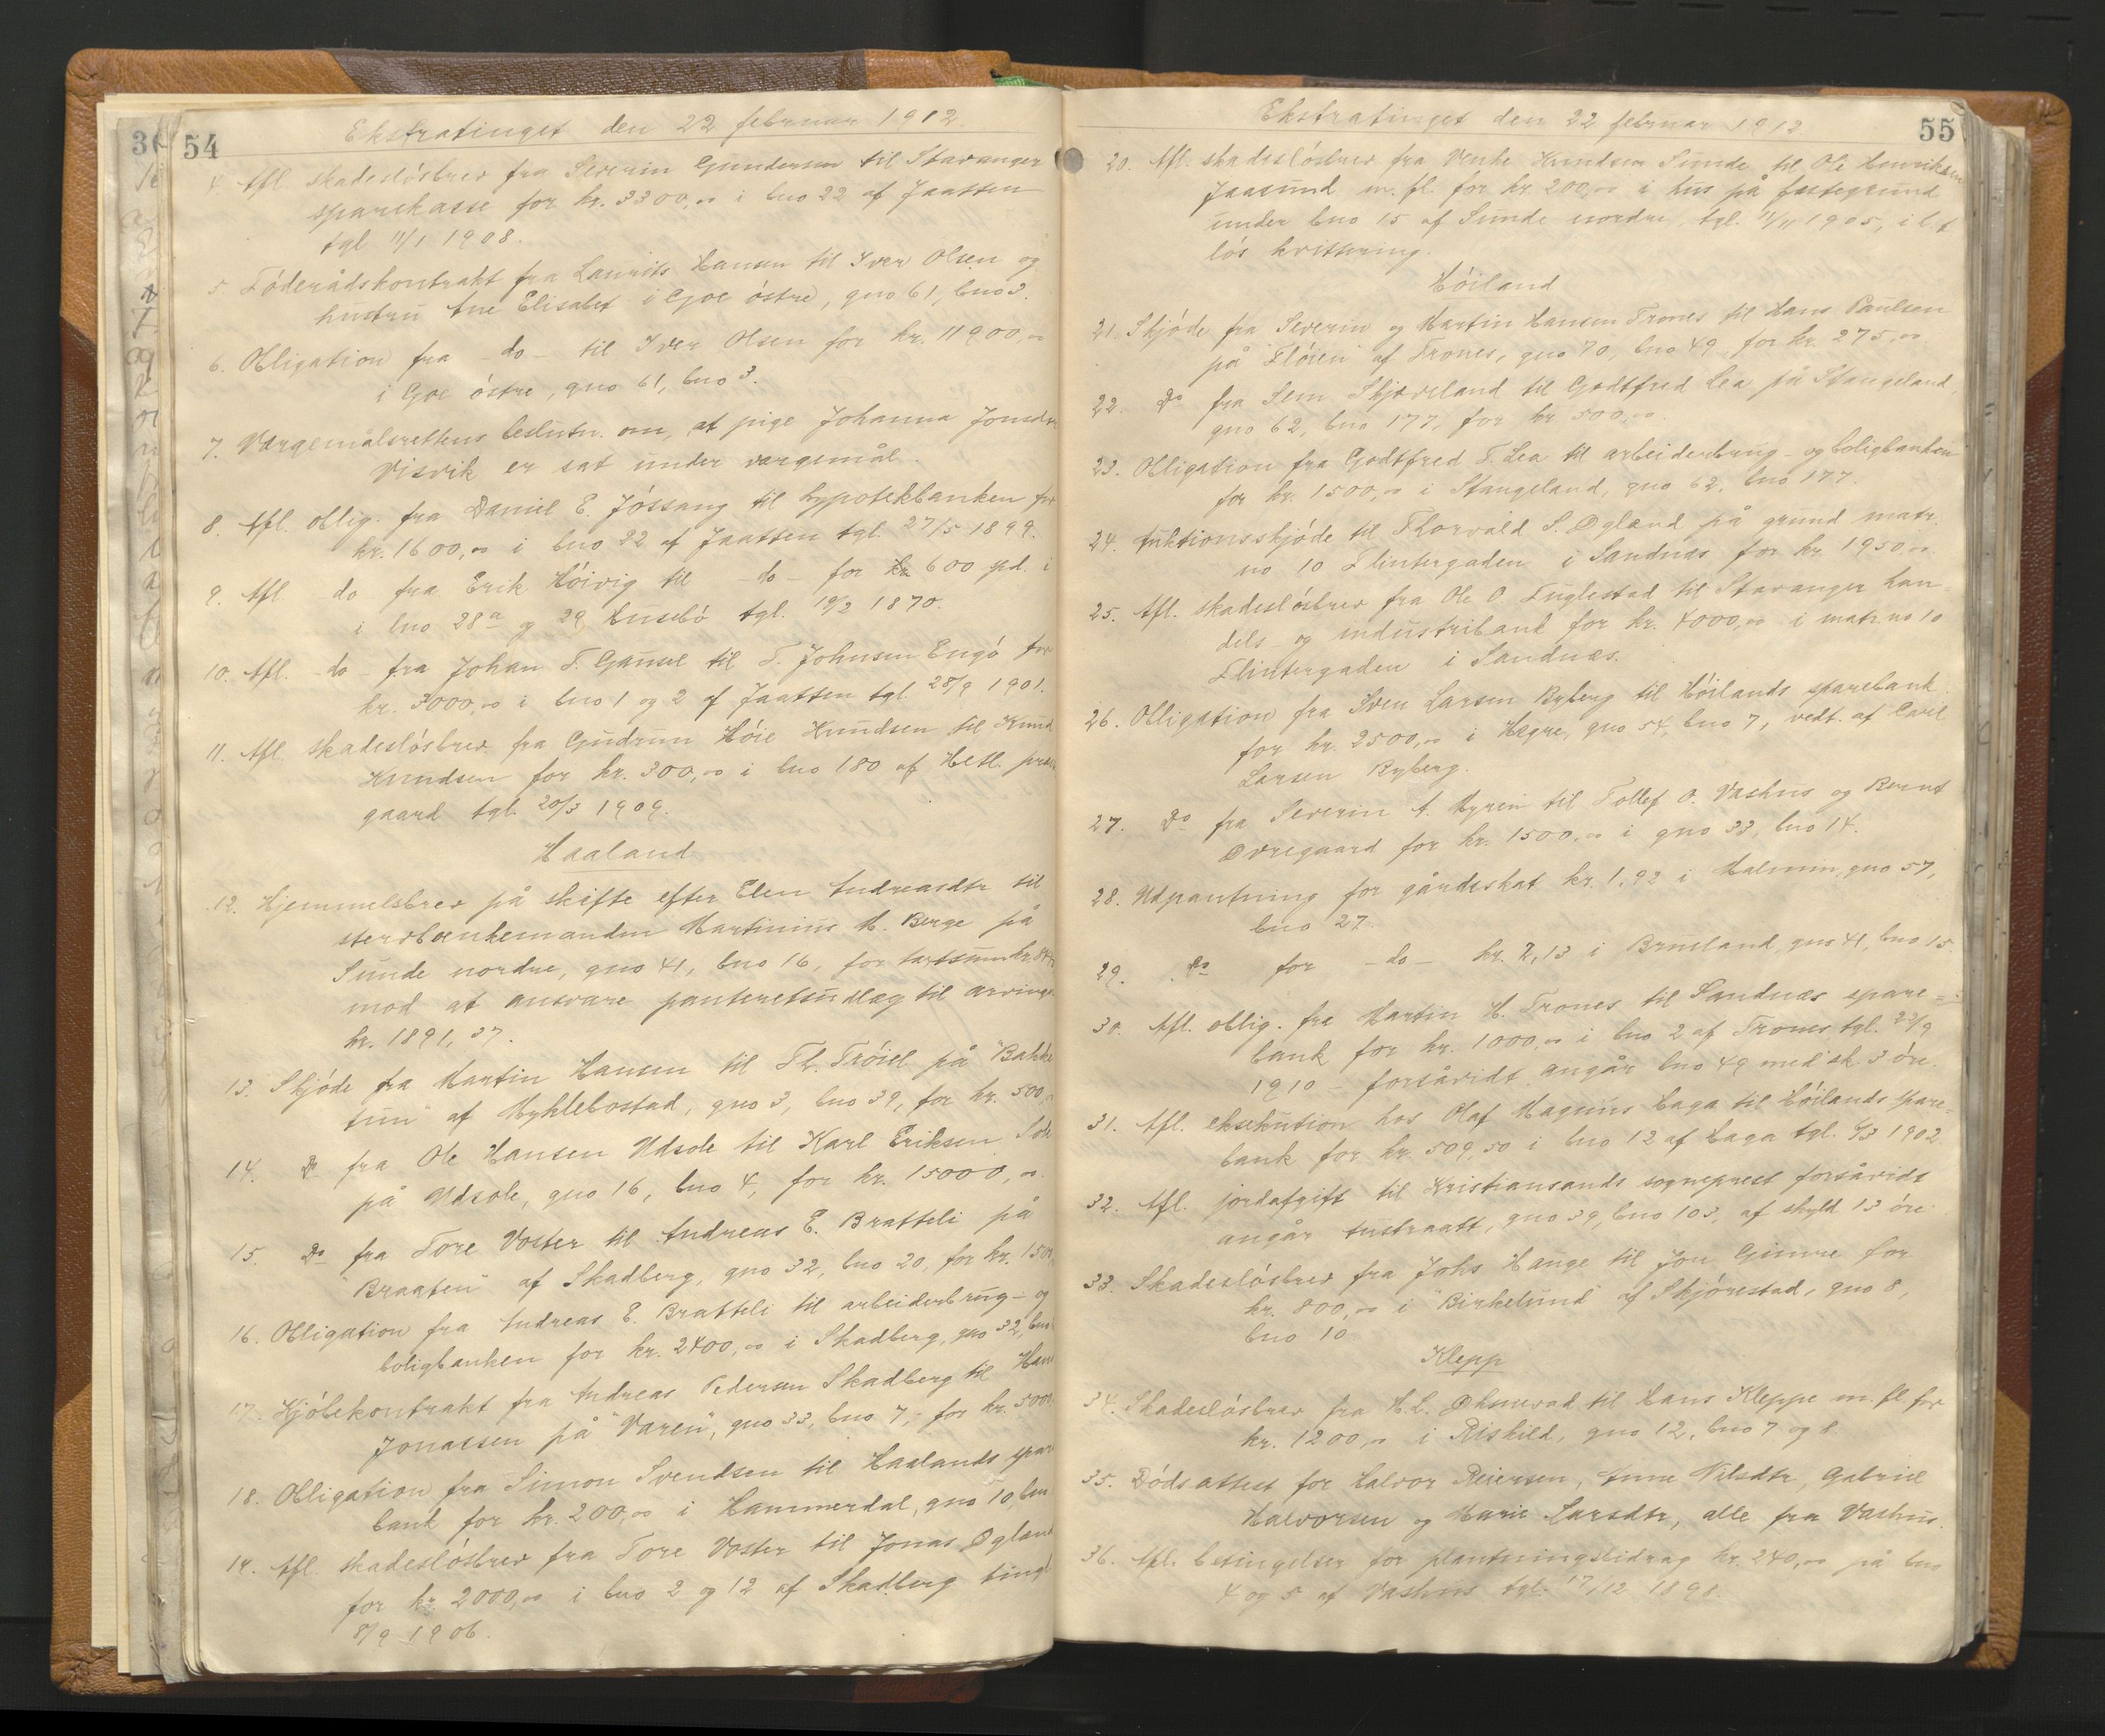 54
Ekstratinget den 22 februar 1912.
4. Afl. skadesløsbrev fra Severin Gundersen til Stavanger
sparekasse for kr. 3300,00 i bno 22 af Jaatten
tgl. 11/1 1908.
5. Føderådskontrakt fra Laurits Hansen til Iver Olsen og
hustru Ane Elisabet i Goe østre, gno 61, bno 3.
6. Obligation fra -do- til Iver Olsen for kr. 11900,00
i Goe østre, gno 61, bno 3.
7. Værgemålsrettens beslutn. om, at pige Johanna Jonsdtr
Visvik er sat under værgemål.
8. Afl. oblig. fra Daniel E. Jøssang til hypotekbanken for
kr. 1600,00 i bno 22 af Jaatten tgl. 27/5 1899.
9. Afl. do fra Erik Høivig til -do- for 600 spd. i
i bno 28a og 29 Husebø tgl. 19/2 1870.
10. Afl. -do- fra Johan T. Gausel til T. Johnsen Engø for
kr. 3000,00 i bno 1 og 2 af Jaatten tgl. 28/9 1901.
11. Afl. skadesløsbrev fra Gudrun Høie Knudsen til Knud
Knudsen for kr. 300,00 i bno 180 af Hetl. præste
gaard tgl. 20/3 1909.
Haaland
12. Hjemmelsbrev på skifte efter Elen Andreasdtr til
stervboenkemanden Martinius M. Berge på
Sunde nordre, gno 41, bno 16, for taxtsum kr.
mod at ansvare panteretsudlæg til arvinge
kr. 1891,37.
13. Skjøde fra Martin Hansen til Th. Trøiel på "Bakke
tun" af Myklebostad, gno 3, bno 39, for kr. 500,
14. Do fra Ole Hansen Udsole til Karl Eriksen Sole
på Udsole, gno 16, bno 4, for kr. 15000,00.
15. Do fra Tore Voster til Andreas E. Bratteli på
"Braaten" af Skadberg, gno 32, bno 20, for kr. 150
16. Obligation fra Andreas E. Bratteli til arbeiderbrug- og
boligbanken for kr. 2400,00 i Skadberg, gno 32, bno
17. Kjøbekontrakt fra Andreas Pedersen Skadberg til Hans
Jonassen på "Varen", gno 33, bno 7, for kr. 5000
18. Obligation fra Simon Svendsen til Haalands spare
bank for kr. 200,00 i Hammerdal, gno 10, bno
19. Afl. skadesløsbrev fra Tore Voster til Jonas Øgland
for kr. 2000,00 i bno 2 og 12 af Skadberg tingl.
8/9 1906.
55
Ekstratinget den 22 februar 1912
20. Afl. skadesløsbrev fra Knudsen Sunde til Ole Henriksen
Jaasund m. fl. for kr. 200,00 i hus på fæstegrund
under bno 15 af Sunde nordre tgl. 11/11 1905, i l. t
løs kvittering.
Høiland
21. Skjøde fra Severin og Martin Hansen Trones til Hans Paulsen
på "Fløien" af Trones, gno 70, bno 49 for kr. 275,00
22. Do fra Sem Skjæveland til Godtfred Lea på Stangeland,
gno 62, bno 177, for kr. 500,00.
23. Obligation fra Godtfred T. Lea til arbeiderbrug- og boligbanken
for kr. 1500,00 i Stangeland, gno 62, bno 177.
24. Auktionsskjøde til Thorvald S. Øgland på grund matr.
no 10 Flintergaden i Sandnæs for kr. 1950,00.
25. Afl. skadesløsbrev fra Ole O. Fuglestad til Stavanger han-
dels og industribank for kr. 4000,00 i matr. no 10
Flintergaden i Sandnæs.
26. Obligation fra Sven Larsen Ryberg til Høilands sparebank
for kr. 2500,00 i Hegre, gno 54, bno 7, vedt. af Carel
Larsen Ryberg.
27. Do fra Severin A. Myren til Tollef O. Vashus og Bernt
Øvregaard for kr. 1500,00 i gno 33, bno 14.
28. Udpantning for gårdsskat kr. 1,92 i Malmin, gno 57,
bno 27.
29. Do for -do- kr. 2,13 i Brusland, gno 41, bno 15
30. Afl. oblig. fra Martin H. Trones til Sandnæs spare=
bank for kr. 1000,00 i bno 2 af Trones tgl. 23/9
1910 - forsåvidt angår bno 49 med sk. 3 øre.
31. Afl. eksekution hos Olaf Magnus Haga til Høilands spare=
bank for kr. 509,50 i bno 12 af Haga tgl. 6/3 1902
32. Afl. jordafgift til Kristiansands sogneprest forsåvidt
angår Austraatt, gno 39, bno 103, af skyld 13 øre.
33. Skadesløsbrev fra Johs Hauge til Jon Gimre for
kr. 800,00 i "Birkelund" af Skjørestad, gno 8,
bno 10.
Klepp
34. Skadesløsbrev fra H.L. Øksnevad til Hans Kleppe m. fl. for
kr. 1200,00 i Riskild, gno 12, bno 7 og 8.
35. Dødsattest for Halvor Reiersen, Anne Nilsdtr, Gabriel
Halvorsen og Marie Larsdtr, alle fra Vashus.
36. Afl. betingelser for plantningsbidrag kr. 240,00 på bno
4 og 5 af Vashus tgl. 17/12 1898.